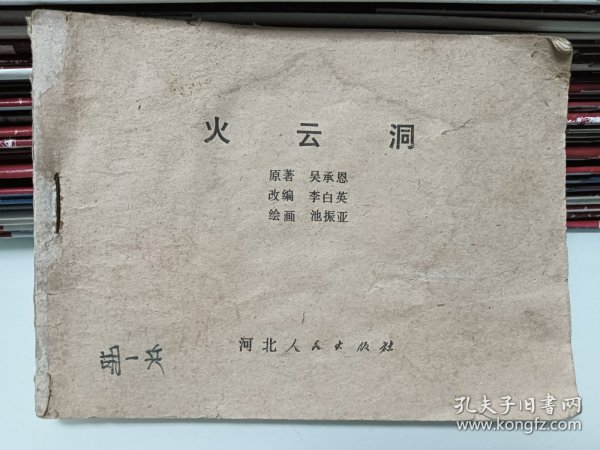 火云洞
原著 吴承恩
改编 李白英
绘画 池振亚
河北人民出版社
胡一兵
孔夫子旧书网
www.kongfz.com